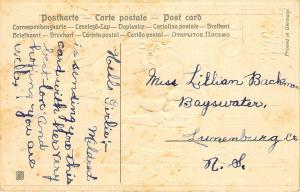 Postkarte — Carte postale — Post card
Correspondenzkarte — Levelező-Lap — Dopisnice — Cartolina postale — Brefkort
Briefkaart — Brevkort — Karta pocztowa — Cartão postal — Открытое Письмо
Printed in Germany
Hello Girlie:-
Mildred
is sending you this
card with her very
best love and
hoping you are
well.
Miss Lillian Backman
Bayswater,
Lunenburg Co
N. S.